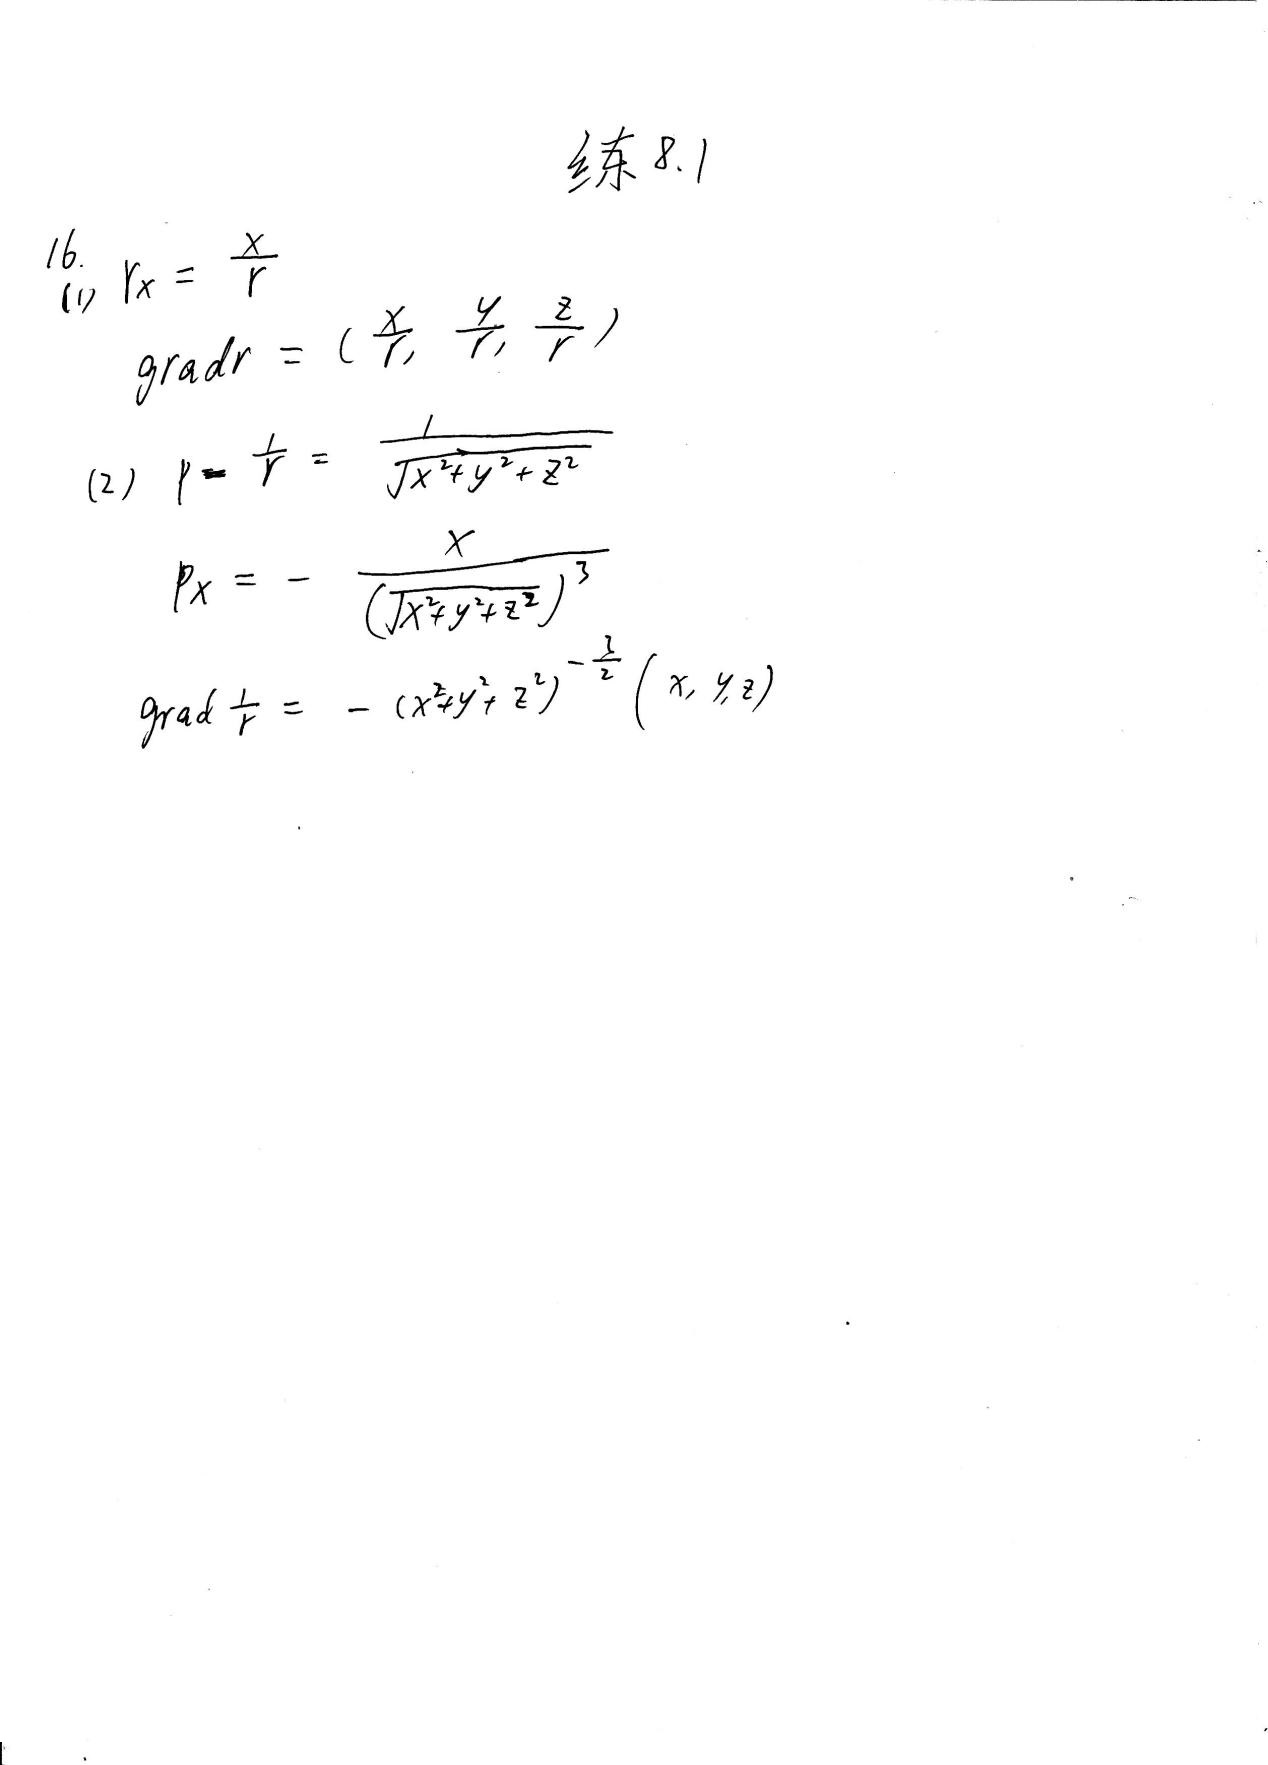 练 8.1
16.
(1) rx = x/r
gradr = (x/r, y/r, z/r)
(2) p = 1/r = 1/√(x²+y²+z²)
px = - x/(√(x²+y²+z²))³
grad 1/r = - (x²+y²+z²)^(-3/2) (x, y, z)